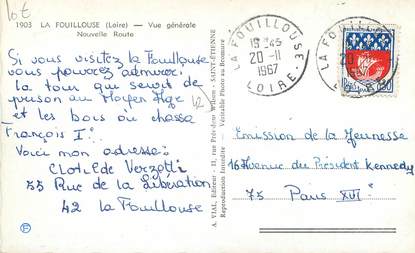 lot
1903 LA FOUILLOUSE (Loire) — Vue générale
Nouvelle Route
Si vous visitez la Fouillouse
vous pouvez admirer
la tour qui servit de
prison au Moyen Age
et les bois ou chassa
François Iᵉʳ.
Voici mon adresse:
CLotilde Verzetti
35 Rue de la Libération
42 la Fouillouse
12
A. VIAL, Editeur - 11, Rue Président Wilson - SAINT-ETIENNE
Reproduction Interdite Véritable Photo au Bromure
LA FOUILLOUSE
19 H 45
20 - 11
1967
LOIRE
LA FOUILLOUSE
20
1967
0,30
Emission de la Jeunesse
16 Avenue du Président Kennedy
75 Paris XVIᵉ